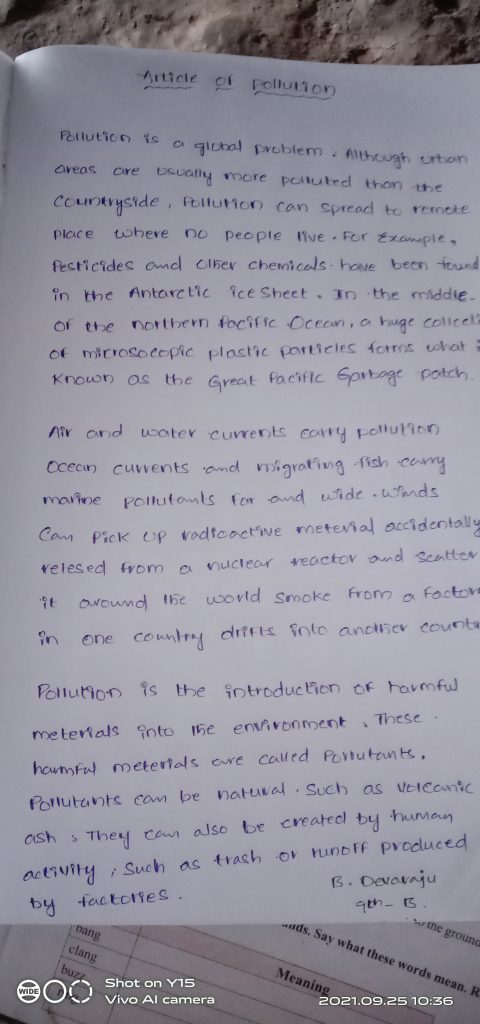 Article of pollution
Pollution is a global problem. Although urban
areas are usually more polluted than the
countryside, pollution can spread to remote
place where no people live. For Example,
Pesticides and other chemicals have been found
in the Antarctic ice sheet. In the middle
of the northern Pacific Ocean, a huge collecti
of microsocopic plastic particles forms what i
Known as the Great Pacific Garbage patch.
Air and water currents carry pollution
Ocean currents and migrating fish carry
marine pollutants for and wide. winds
Can Pick up radioactive meterial accidentally
relesed from a nuclear reactor and scatter
it around the world smoke from a factor
in one country drifts into another countr
Pollution is the introduction of harmful
meterials into the environment. These
harmful meterials are called Pollutants.
Pollutants can be natural, such as Volcanic
ash. They can also be created by human
activity, such as trash or runoff produced
by factories.
B. Devaraju
9th-B.
to the ground
nds. Say what these words mean. R
bang
clang
buzz
Meaning
WIDE
Shot on Y15
Vivo AI camera
2021.09.25 10:36